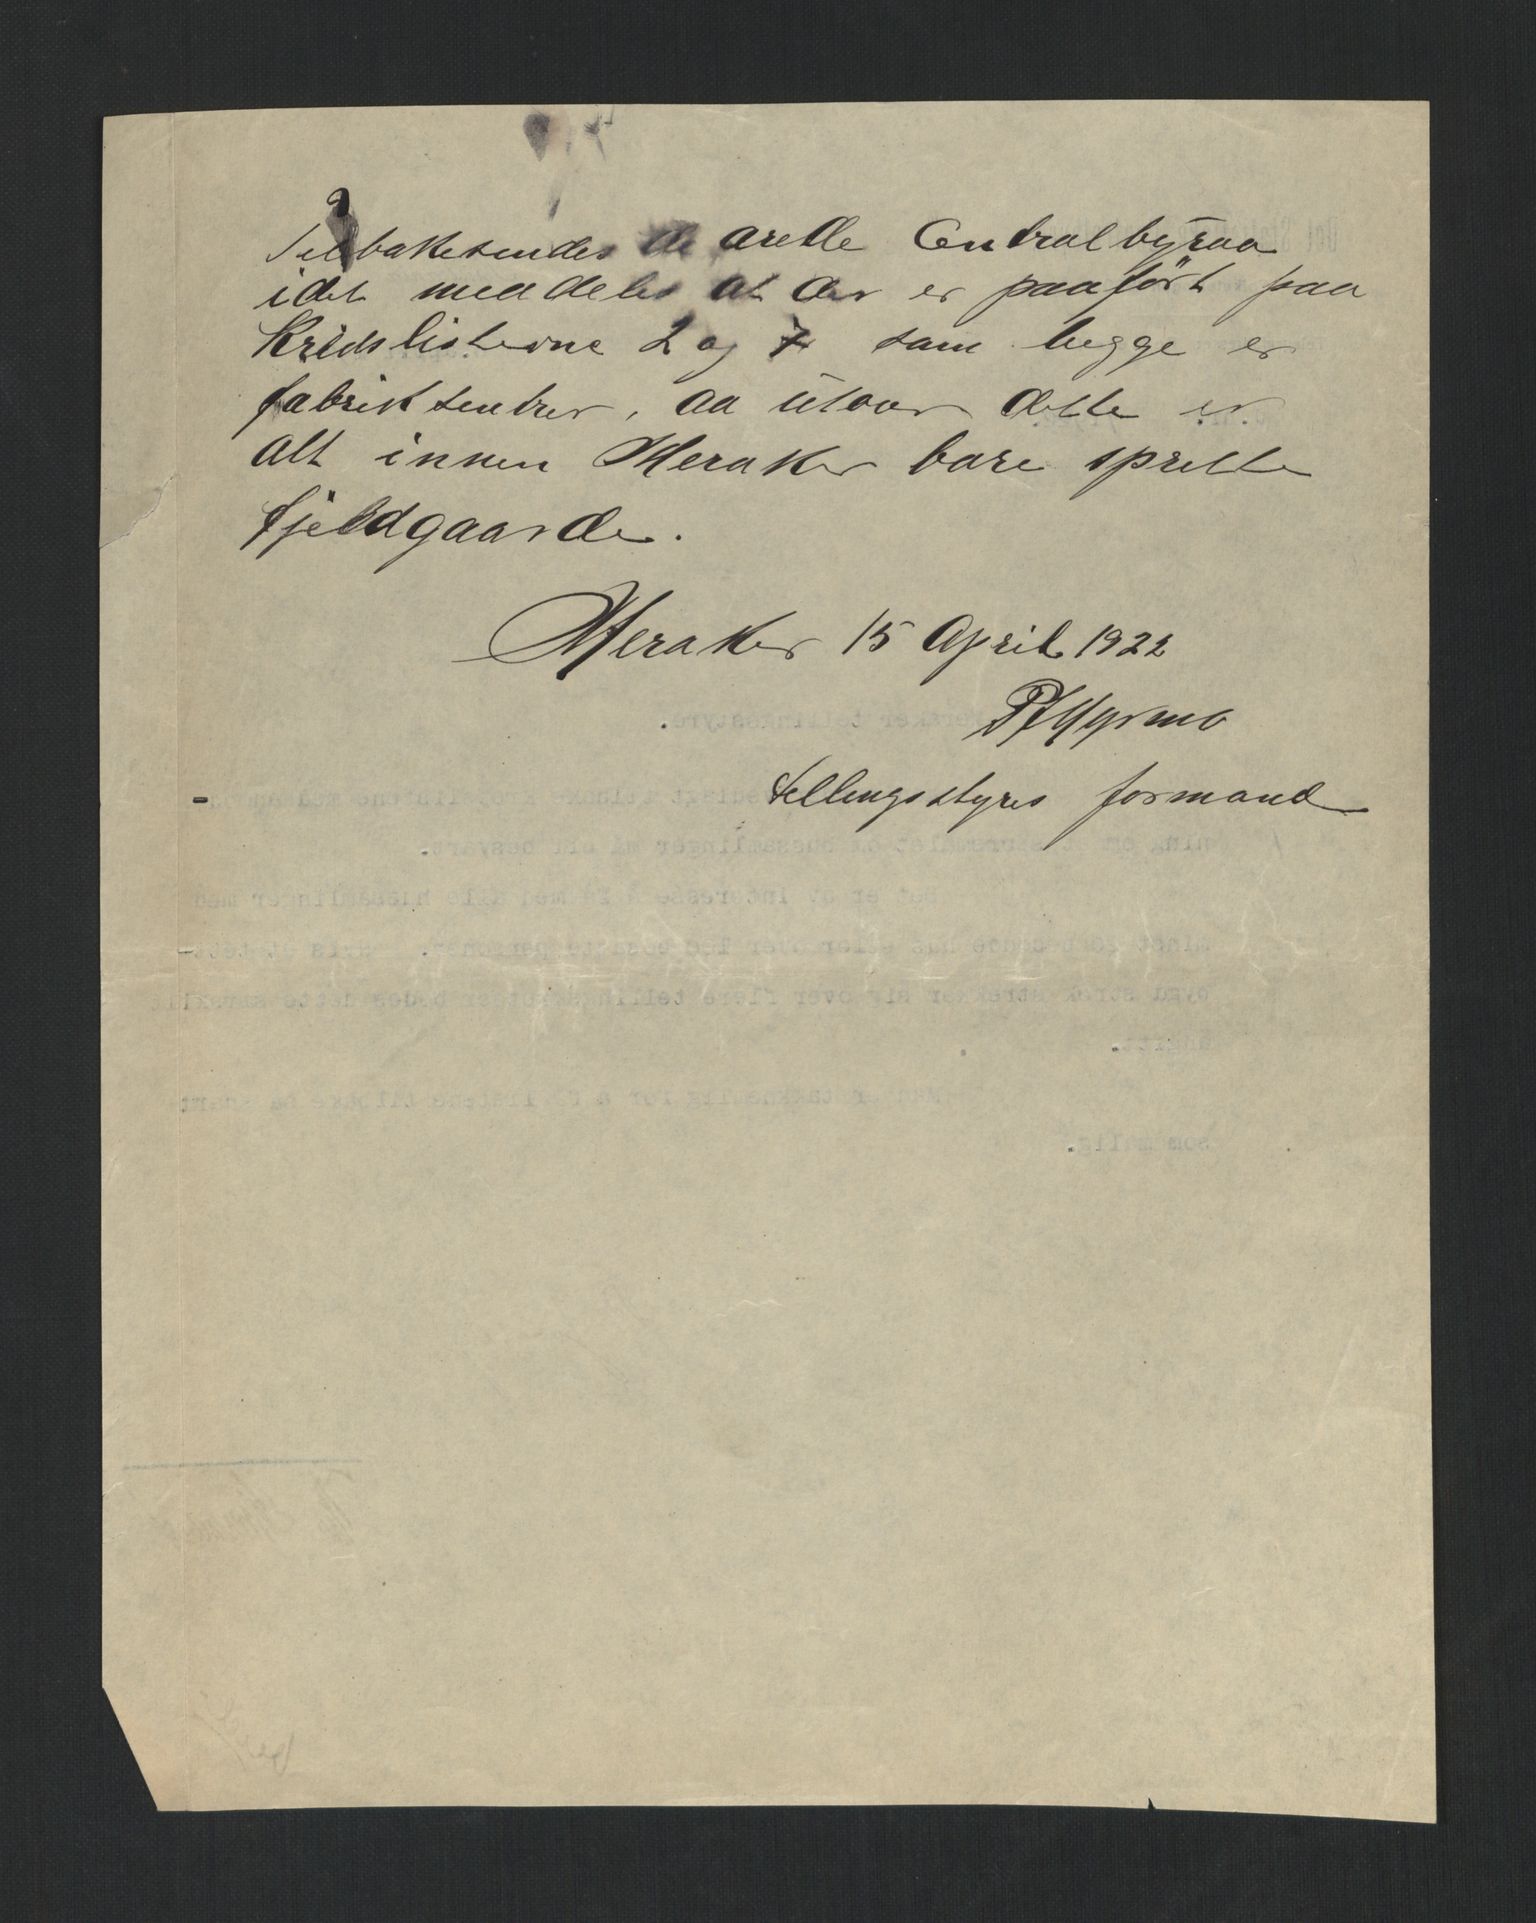 Tilbakesendes de ærede Centralbyraa
idet meddeles at der er paaført paa
Kredslisterne 2 og 7 som begge er
fabriksentrer, aa utover dette er
alt innen Meraker bare spredte
fjeldgaarde.
Meraker 15 April 1922
tellingsstyres formand